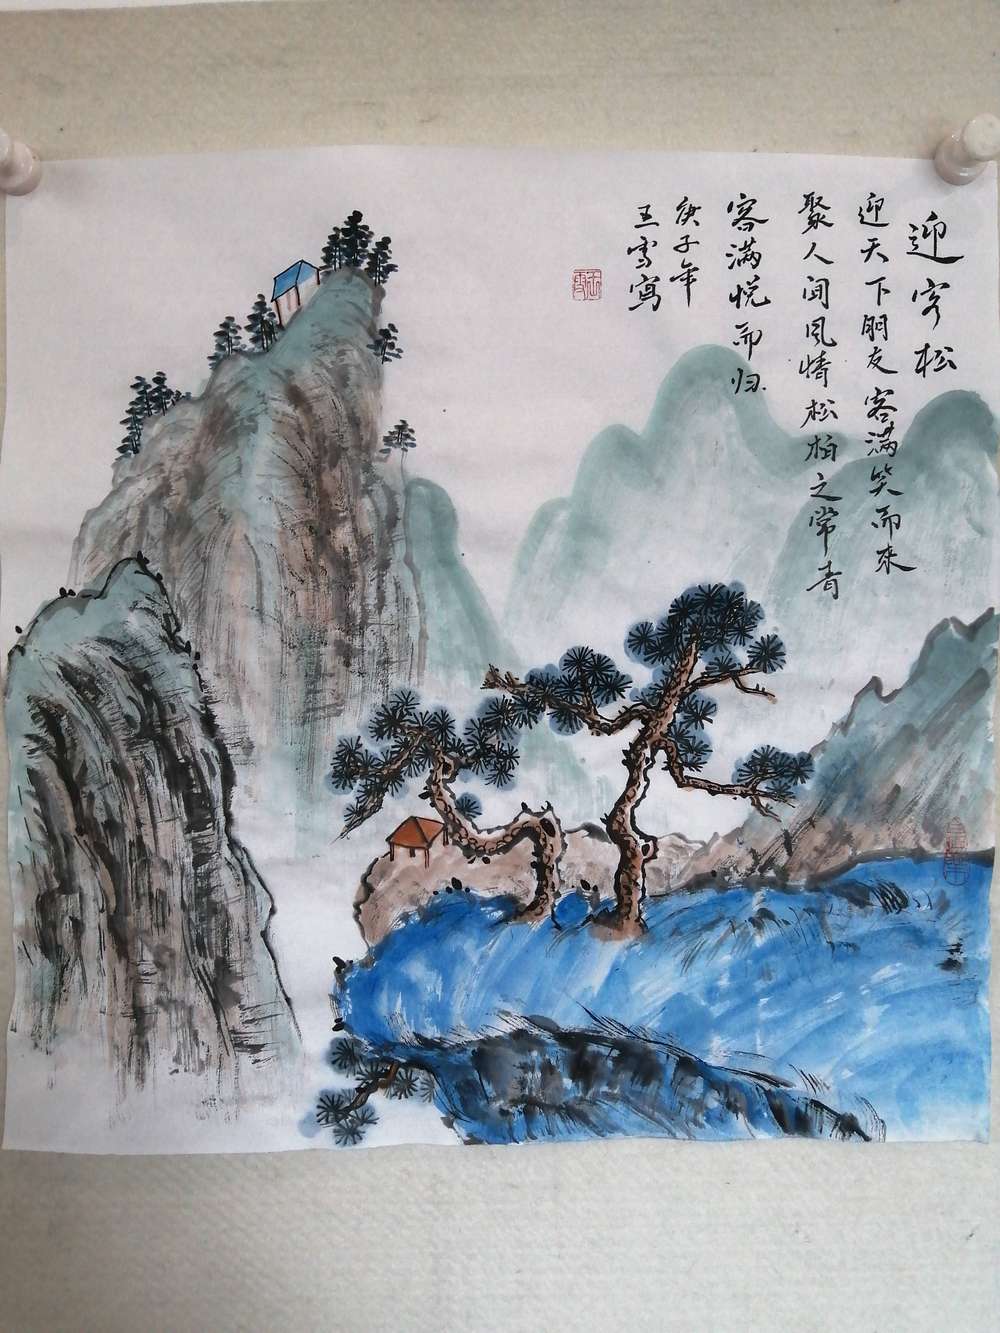 迎客松
迎天下朋友客满笑而来
聚人间风情松柏之常青
客满悦而归
庚子年
王雪寫